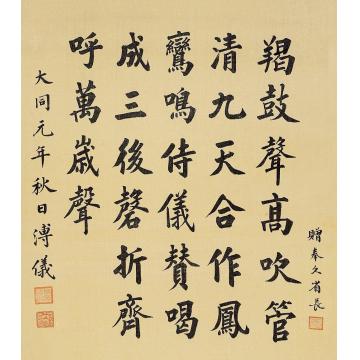 羯鼓聲高吹管
清九天合作鳳
鸞鳴侍儀贊喝
成三後磬折齊
呼萬歲聲
大同元年秋日溥儀
贈奉久省長